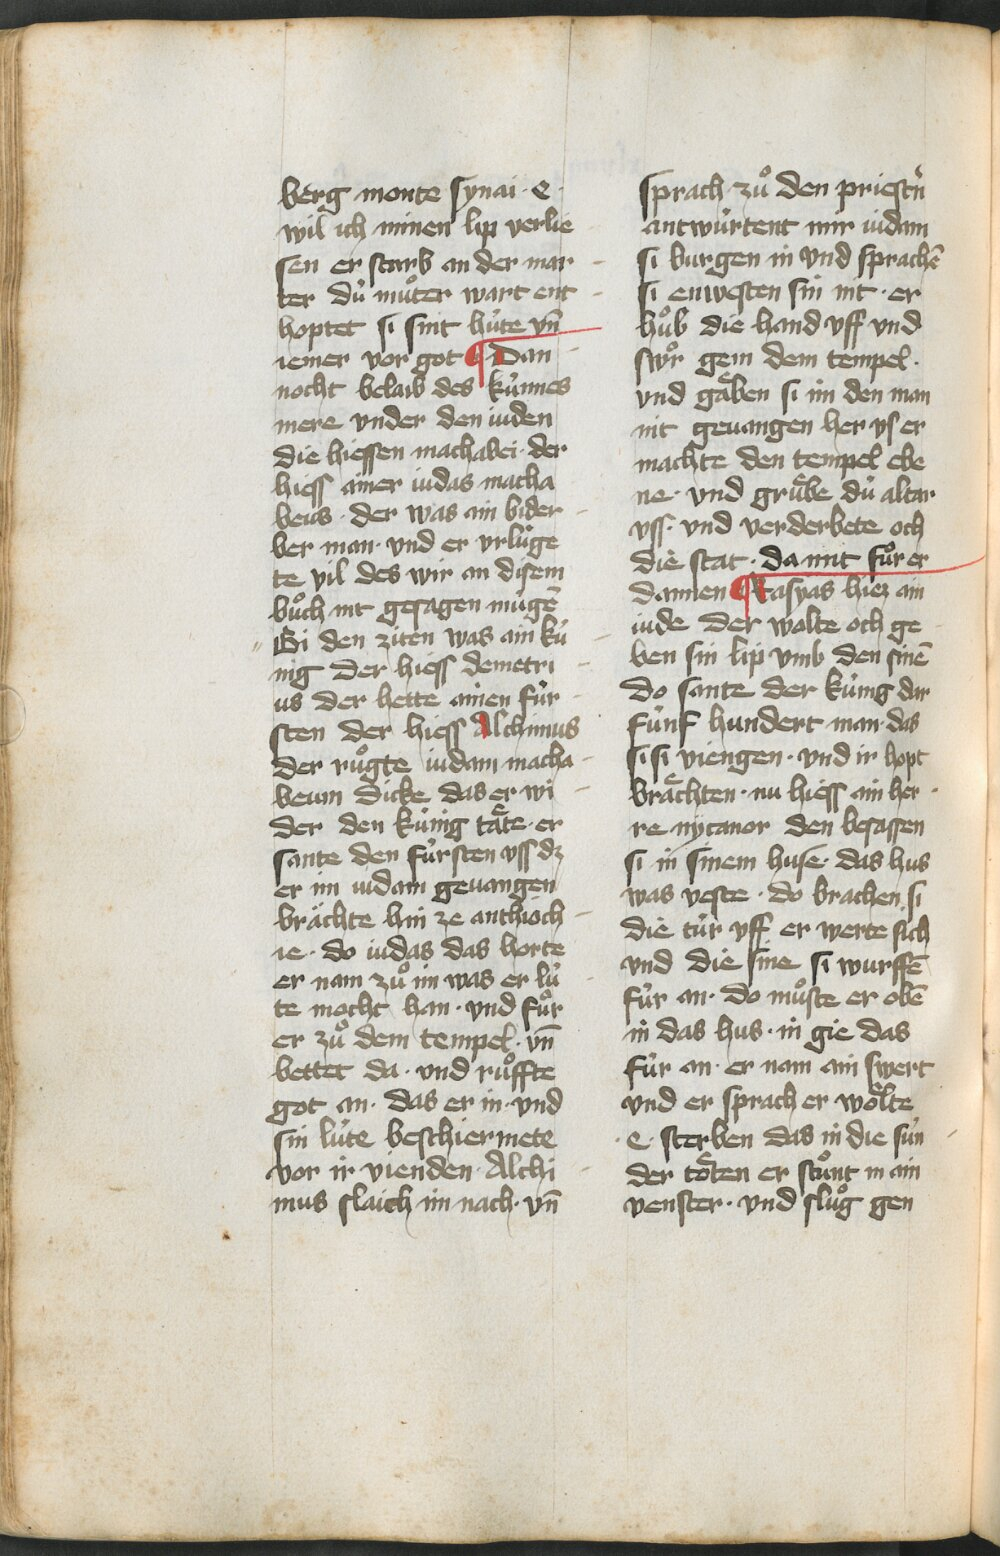 berg monte synai · e
wil ich minen lip verlie
sen er starb an der mar
ter dů můter wart ent
hoptet si sint hu̍te vn̄
iemer vor got ¶ Dan
nocht belaib des ku̍nnes
mere vnder den iuden
die hiessen machabei · der
hiess ainer iudas macha
beus · der was ain bider
ber man · vnd er vrlu̍ge
te vil des wir an disem
bůch nit gesagen mu̍gē
Bi den ziten was ain ku̍
nig der hiess demetri
us der hette ainen fu̍r
sten der hiess Alchimus
der růgte iudam macha
beum dicke das er wi
der den ku̍nig taͤte · er
sante den fu̍rsten vss dz
er im iudam geuangen
braͤchte hin ze anthioch
ie · do iudas das horte
er nam zů im was er lu̍
te mocht han · vnd fůr
er zů dem tempel · vn̄
bettet da · vnd růffte
got an · das er in · vnd
sin lu̍te beschiermete
vor ir vienden · Alchi
mus slaich im nach · vn̄
sprach zů den priestn̄
antwu̍rtent mir iudam
si burgen in vnd sprachē
si enwesten sin nit · er
hůb die hand vff vnd
swůr gein dem tempel ·
vnd gaͤben si im den man
nit geuangen her vs er
machte den tempel ebe
ne · vnd gru̍be du̍ altar
vss · vnd verderbete och
die stat · da mit fůr er
dannen ¶ Rasyas hiez ain
iude der wolte och ge
ben sin lip vmb den sinē
do sante der ku̍nig dar
fu̍nf hundert man · das
si si viengen · vnd ir hopt
braͤchten · nu hiess ain her
re nycanor den besassen
si in sinem huse · das hus
was veste · do brachen si
die tu̍r vff er werte sich
vnd die sine si wurffē
fu̍r an · do můste er obē
in das hus · in gie das
fu̍r an · er nam ain swert
vnd er sprach er woͤlte
e · sterben das in die su̍n
der toͤten er stůnt in ain
venster · vnd slůg gen